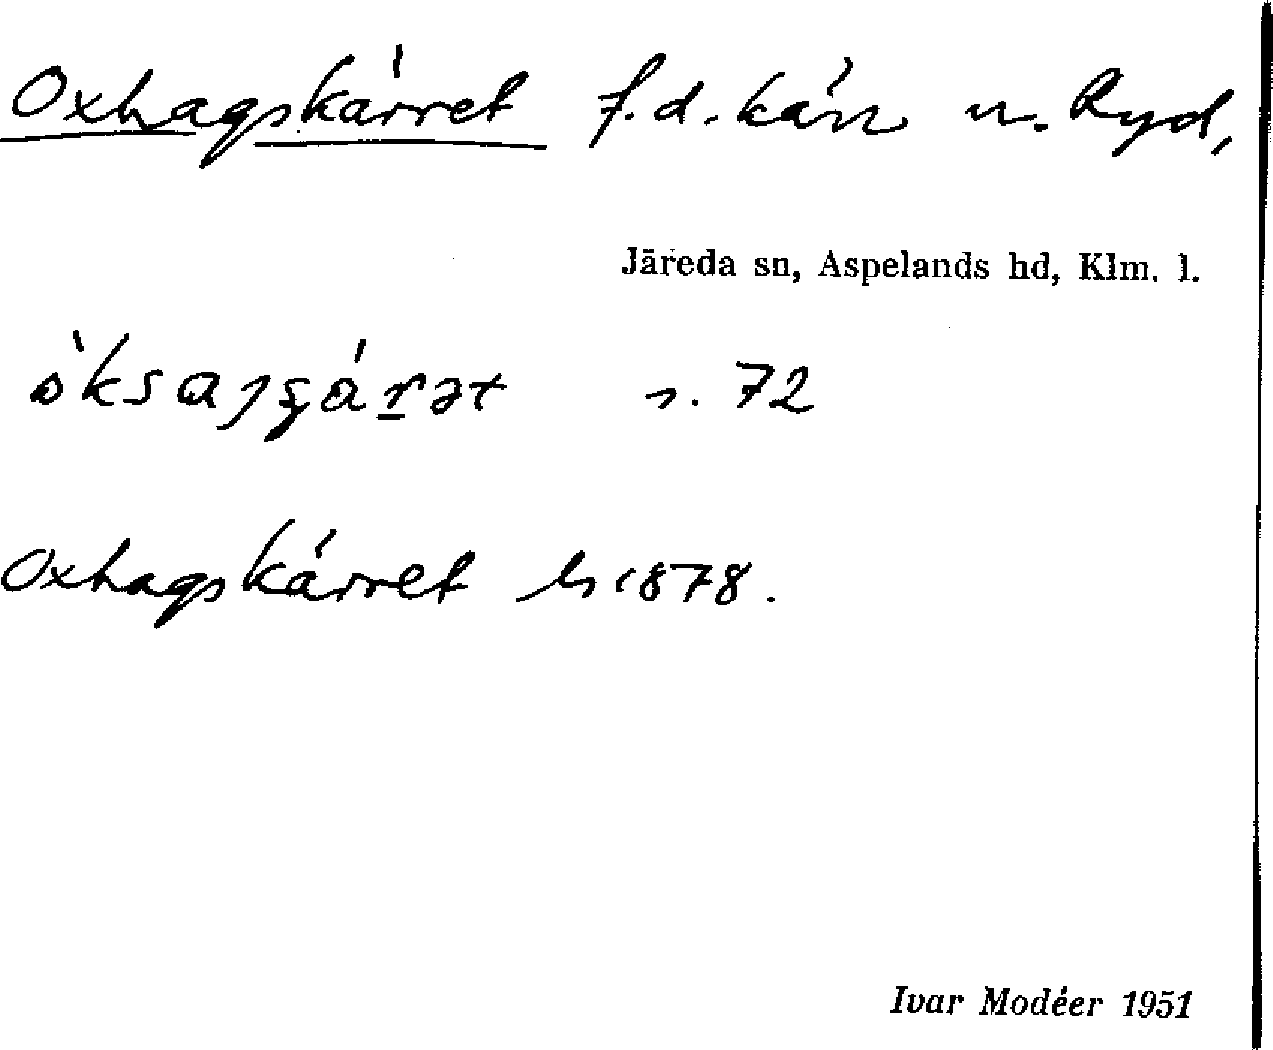 Oxhagskärret f.d. kärr n. Ryd,
Järeda sn, Aspelands hd, Klm. l.
s. 72
Oxhagskärret ls 1878.
Ivar Modéer 1951